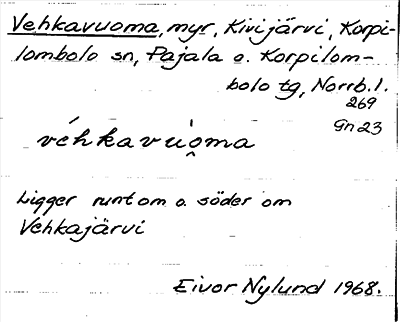 Vehkavuoma, myr, Kivijärvi, Korpi-
lombolo sn, Pajala o. Korpilom-
bolo tg, Norrb. l.
269
Gn 23
véhkavu̯oma
Ligger runtom o. söder om
Vehkajärvi
Eivor Nylund 1968.